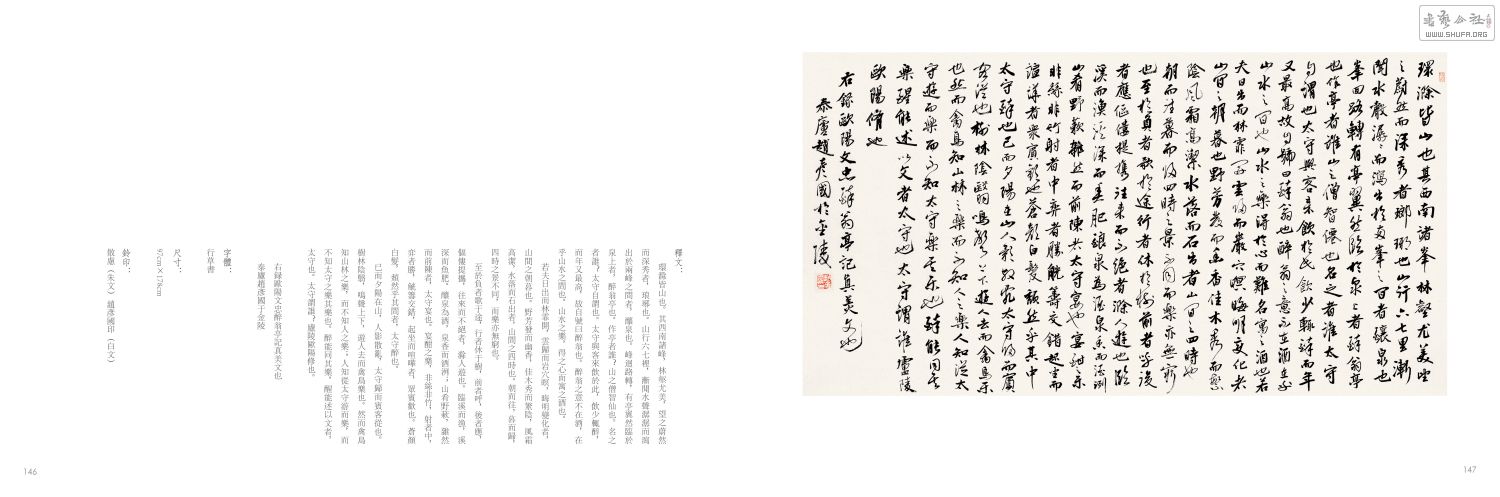 環滁皆山也其西南諸峯林壑尤美望
之蔚然而深秀者瑯琊也山行六七里漸
聞水聲潺潺而瀉出於兩峯之間者釀泉也
峯回路轉有亭翼然臨於泉上者醉翁亭
也作亭者誰山之僧智僊也名之者誰太守
自謂也太守與客來飲於此飲少輒醉而年
又最高故自號曰醉翁也醉翁之意不在酒在乎
山水之間也山水之樂得於心而寓之酒也若
夫日出而林霏開雲歸而巖穴暝晦明變化者
山間之朝暮也野芳發而幽香佳木秀而繁
陰風霜高潔水落而石出者山間之四時也
朝而往暮而歸四時之景不同而樂亦無窮
也至於負者歌於途行者休於樹前者呼後
者應傴僂提攜往來而不絕者滁人遊也臨
溪而漁溪深而魚肥釀泉為酒泉香而酒洌
山肴野蔌雜然而前陳者太守宴也宴酣之樂
非絲非竹射者中弈者勝觥籌交錯起坐而
諠譁者衆賓歡也蒼顏白髮頹然乎其中
太守醉也已而夕陽在山人影散亂太守歸而賓
客從也樹林陰翳鳴聲上下遊人去而禽鳥樂
也然而禽鳥知山林之樂而不知人之樂人知從太
守遊而樂而不知太守樂其樂也醉能同其
樂醒能述以文者太守也太守謂誰廬陵
歐陽脩也
右錄歐陽文忠醉翁亭記真美文也
泰廬趙彥國於金陵
釋文：
環滁皆山也。其西南諸峰，林壑尤美，望之蔚然
而深秀者，琅琊也。山行六七里，漸聞水聲潺潺而瀉
出於兩峰之間者，釀泉也。峰迴路轉，有亭翼然臨於
泉上者，醉翁亭也。作亭者誰？山之僧智仙也。名之
者誰？太守自謂也。太守與客來飲於此，飲少輒醉，
而年又最高，故自號曰醉翁也。醉翁之意不在酒，在
乎山水之間也。山水之樂，得之心而寓之酒也。
若夫日出而林霏開，雲歸而岩穴暝，晦明變化者，
山間之朝暮也。野芳發而幽香，佳木秀而繁陰，風霜
高潔，水落而石出者，山間之四時也。朝而往，暮而歸，
四時之景不同，而樂亦無窮也。
至於負者歌于途，行者休于樹，前者呼，後者應，
傴僂提攜，往來而不絕者，滁人遊也。臨溪而漁，溪
深而魚肥，釀泉為酒，泉香而酒洌；山肴野蔌，雜然
而前陳者，太守宴也。宴酣之樂，非絲非竹，射者中，
弈者勝，觥籌交錯，起坐而喧嘩者，眾賓歡也。蒼顏
白髮，頹然乎其間者，太守醉也。
已而夕陽在山，人影散亂，太守歸而賓客從也。
樹林陰翳，鳴聲上下，遊人去而禽鳥樂也。然而禽鳥
知山林之樂，而不知人之樂；人知從太守游而樂，而
不知太守之樂其樂也。醉能同其樂，醒能述以文者，
太守也。太守謂誰？廬陵歐陽修也。
右録歐陽文忠醉翁亭記真美文也
泰廬趙彥國于金陵
字體：
行草書
尺寸：
97cm×178cm
鈐印：
散廬（朱文） 趙彥國印（白文）
146
147
書藝公社
WWW.SHUFA.ORG